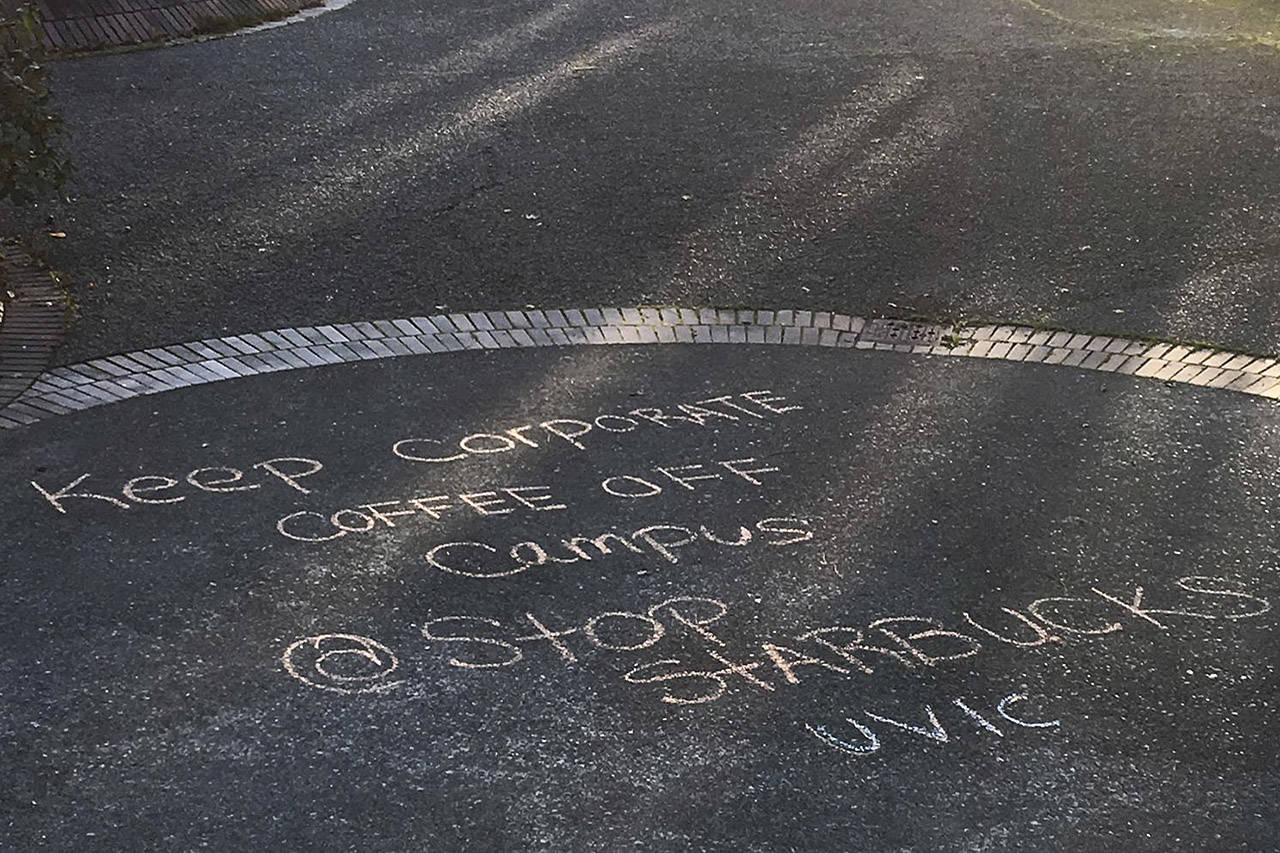 Keep CorpORATE
COFFEE OFF
Campus
@Stop
STARBUCKS
UVIC